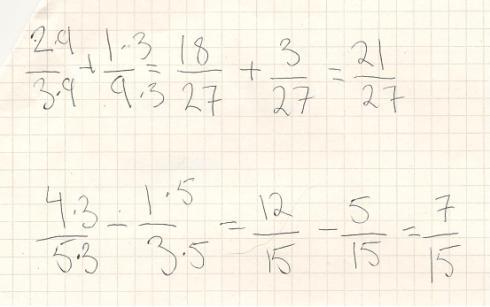 2·9/3·9 + 1·3/9·3 = 18/27 + 3/27 = 21/27
4·3/5·3 - 1·5/3·5 = 12/15 - 5/15 = 7/15